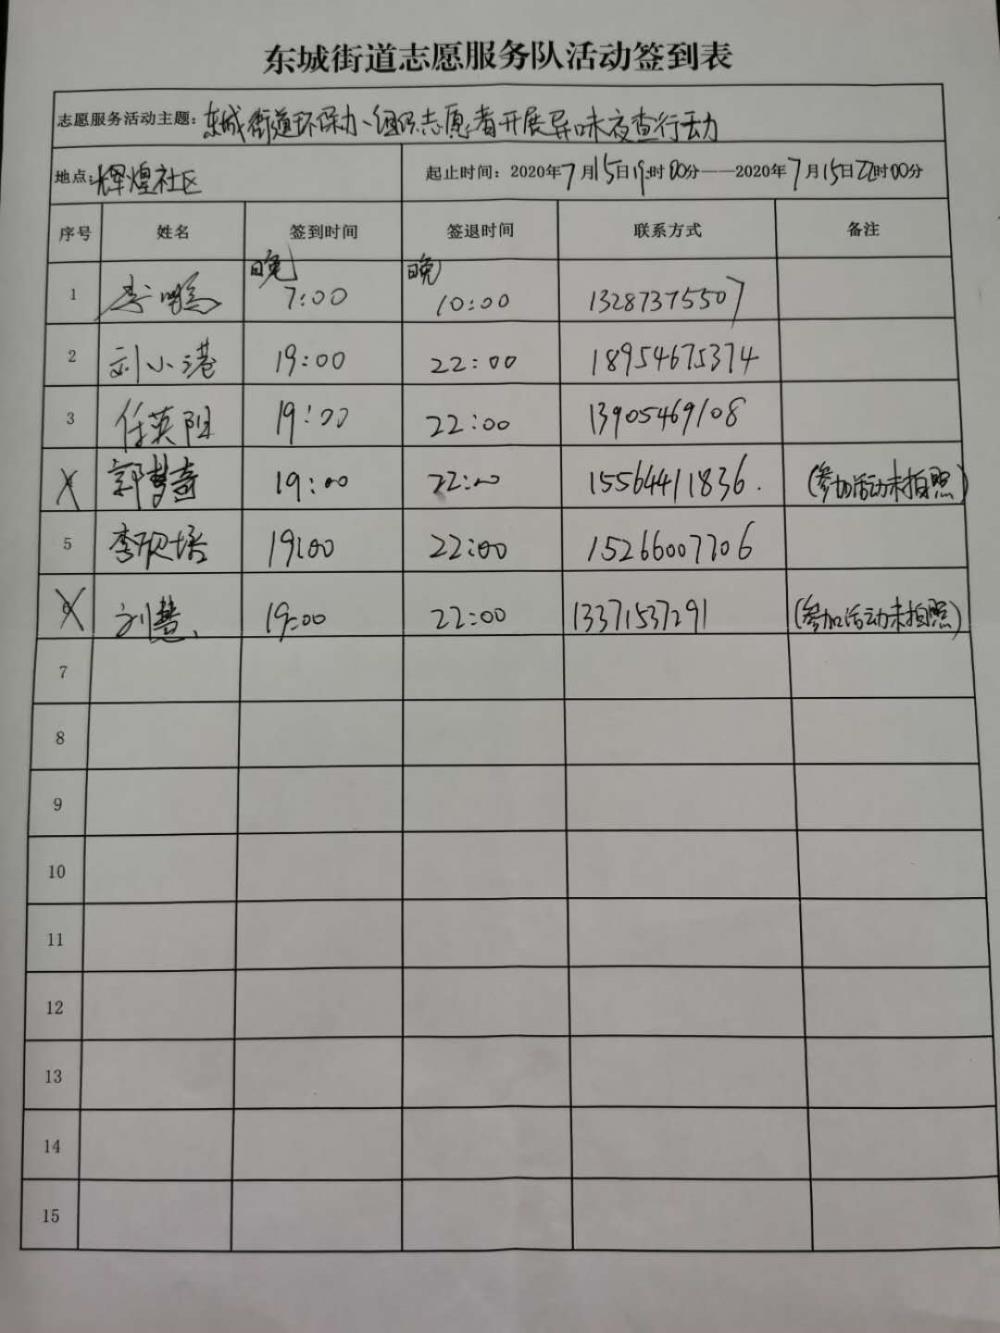 东城街道志愿服务队活动签到表
志愿服务活动主题：东城街道环保办、组织志愿者开展异味夜查行动
地点：辉煌社区 起止时间：2020年7月15日19时00分——2020年7月15日22时00分
序号 姓名 签到时间 签退时间 联系方式 备注
1 李鹏 晚7:00 晚10:00 13287375507
2 刘小港 19:00 22:00 18954675374
3 任英阳 19:00 22:00 13905469108
郭梦奇 19:00 22:00 15564411836. (参加活动未拍照)
5 李砚培 19:00 22:00 15266007706
6 刘慧 19:00 22:00 13371537291 (参加活动未拍照)
7
8
9
10
11
12
13
14
15